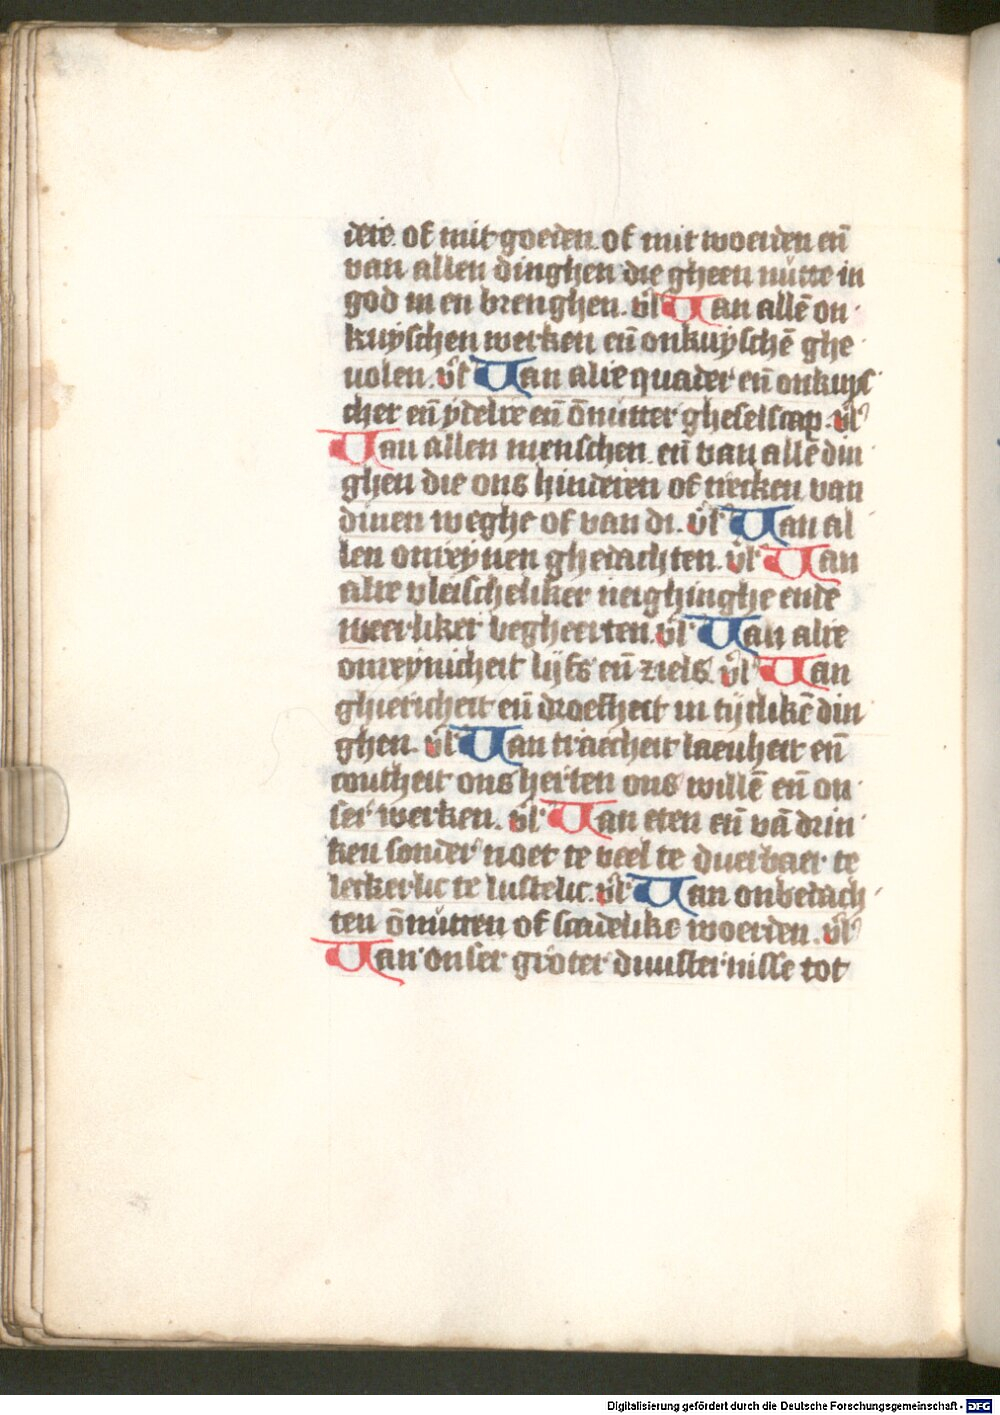 dere. of mit goeden. of mit woerden en̄
van allen dinghen die gheen nutte in
god in en brenghen. v̄l Van allē on
kuyschen werken en̄ onkuyschē ghe
uolen. v̄l Van alre quader en̄ onkuys
cher en̄ ydelre en̄ ōnutter gheselscap. v̄l
Van allen menschen. en̄ van allē din
ghen die ons hinderen of trecken van
dinen weghe of van di. v̄l Van al
len onreynen ghedachten. v̄l Van
alre vleischeliker neighinghe ende
weerliker begheerten. v̄l Van alre
onreynicheit lijfs en̄ ziels. v̄l Van
ghiericheit en̄ droefheit in tijtlikē din
ghen. v̄l Van traecheit laeuheit en̄
coutheit ons herten ons willē en̄ on
ser werken. v̄l Van eten en̄ vā drin
ken sonder noet te veel te duerbaer te
leckerlic te lustelic. v̄l Van onbedach
ten ōnutten of scadelike woerden. v̄l
Van onser groter duusternisse tot
Digitalisierung gefördert durch die Deutsche Forschungsgemeinschaft - DFG